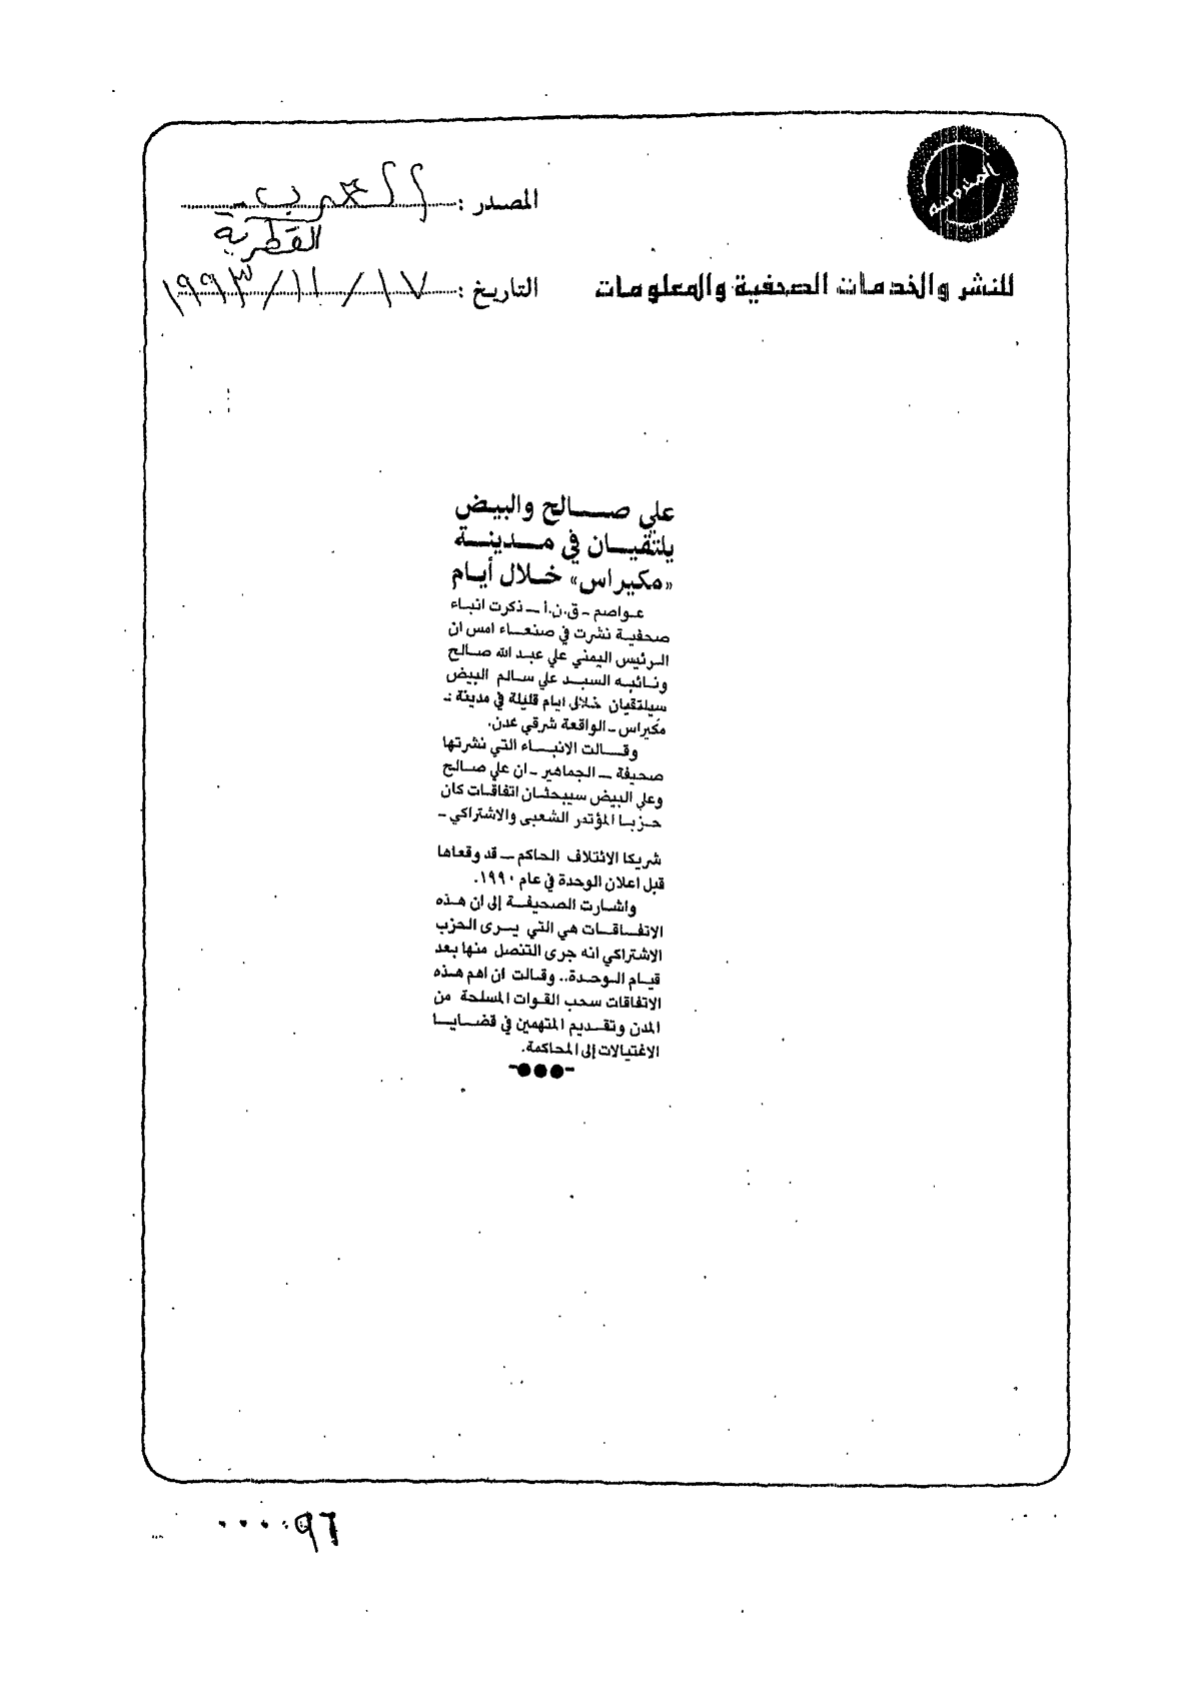 المصدر : العرب
القطرية
للنشر والخدمات الصحفية والمعلومات
التاريخ : ١٧ / ١١ / ١٩٩٣
علي صالح والبيض
يلتقيان في مدينة
«مكيراس» خلال أيام
عواصم - ق.ن.أ - ذكرت انباء
صحفية نشرت في صنعاء امس ان
الرئيس اليمني علي عبد الله صالح
ونائبه السيد علي سالم البيض
سيلتقيان خلال ايام قليلة في مدينة -
مكيراس - الواقعة شرقي عدن.
وقالت الانباء التي نشرتها
صحيفة - الجماهير - ان علي صالح
وعلي البيض سيبحثان اتفاقات كان
حزبا المؤتمر الشعبى والاشتراكي -
شريكا الائتلاف الحاكم - قد وقعاها
قبل اعلان الوحدة في عام ١٩٩٠.
واشارت الصحيفة إلى ان هذه
الاتفاقات هي التي يرى الحزب
الاشتراكي انه جرى التنصل منها بعد
قيام الوحدة.. وقالت ان اهم هذه
الاتفاقات سحب القوات المسلحة من
المدن وتقديم المتهمين في قضايا
الاغتيالات إلى المحاكمة.